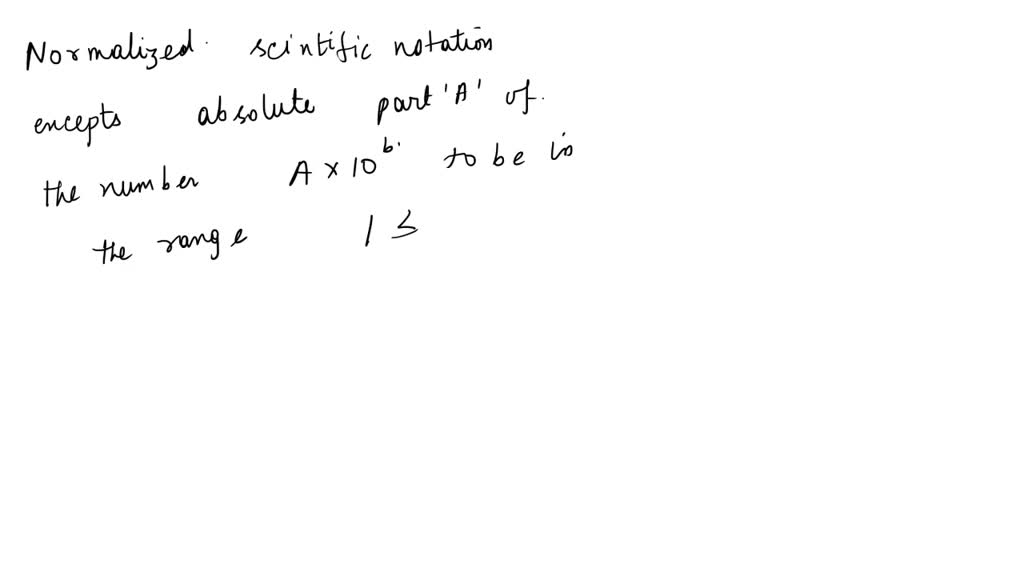 Normalized scintific notation
encepts absolute part 'A' of.
the number A × 10^b. to be in
the range 1 ≤